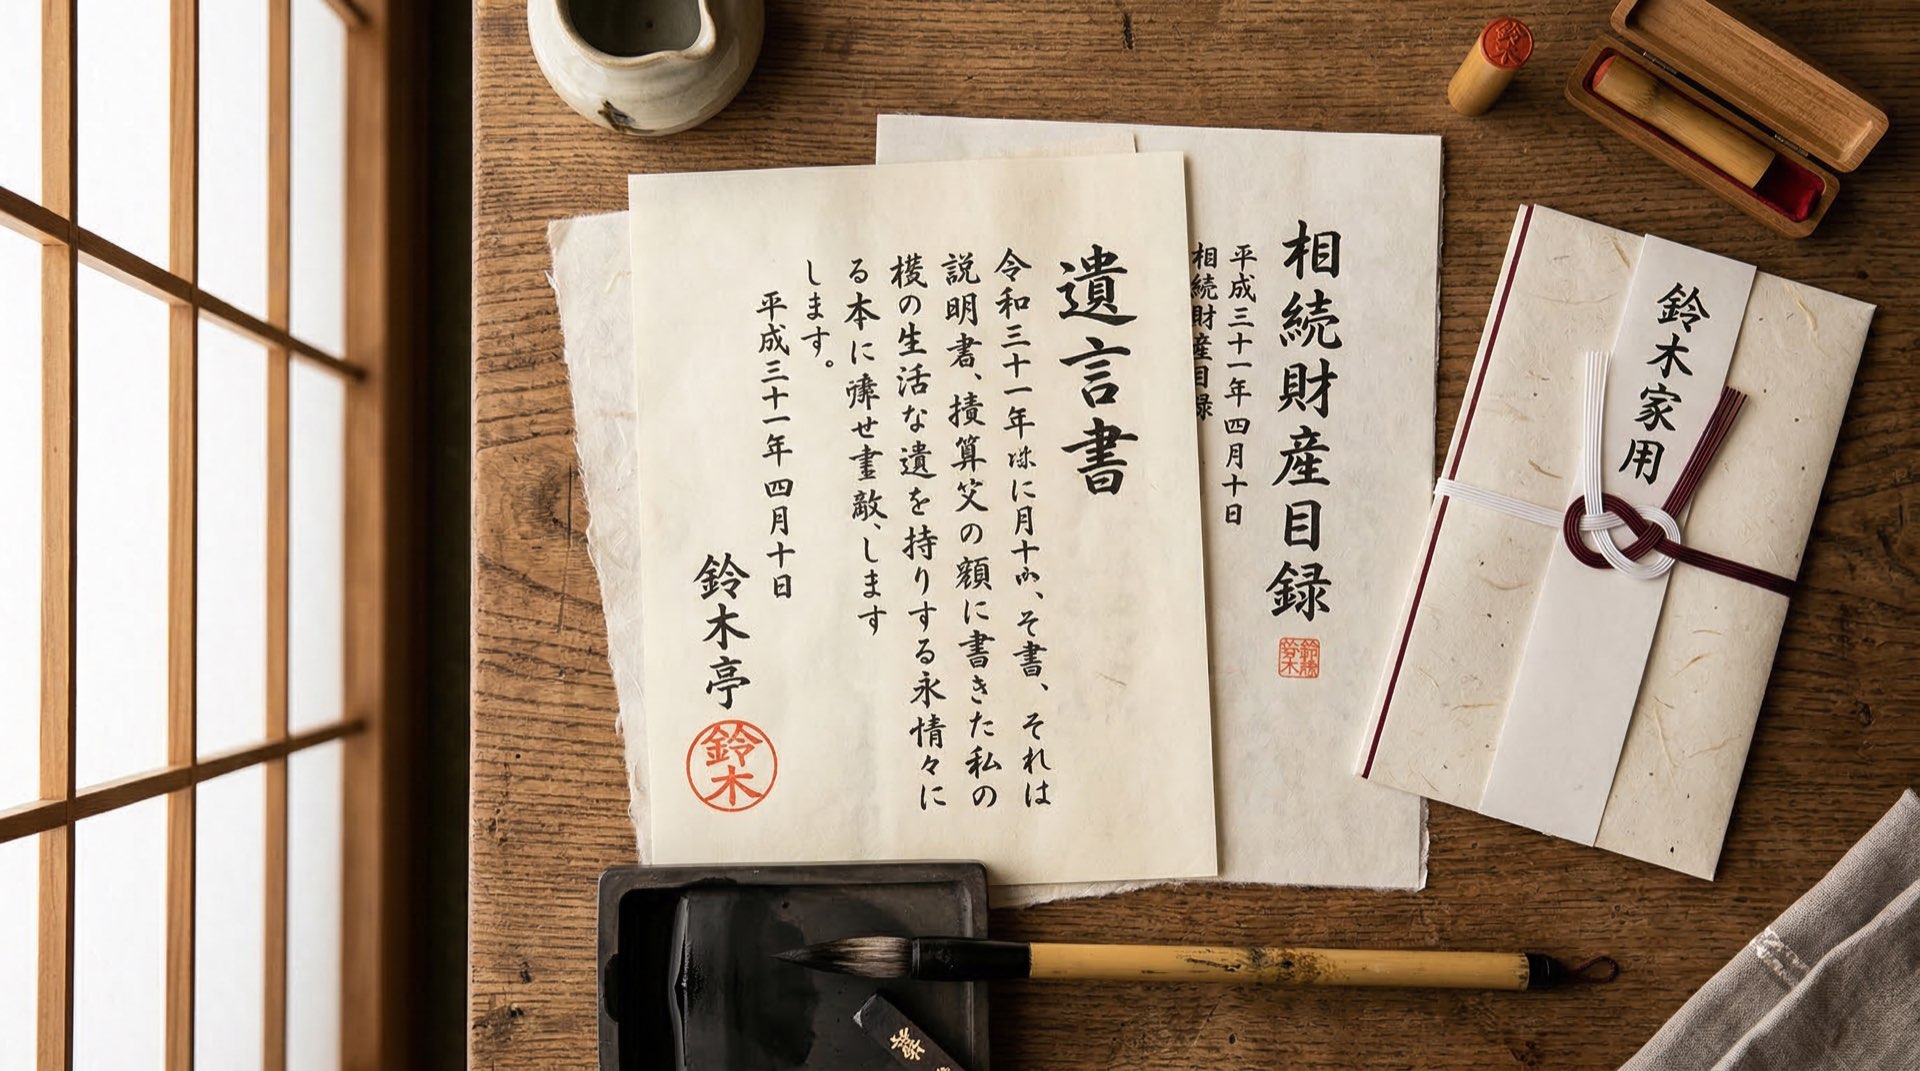 遺言書
令和三十一年 に月十 、そ書、それは
説明書、 算 の額に書きた私の
 の生活な遺を持りする永情々に
る本に せ 敵、します
します。
平成三十一年四月十日
鈴木亭
鈴木
相続財産目録
平成三十一年四月十日
相続財産目録
鈴木家用